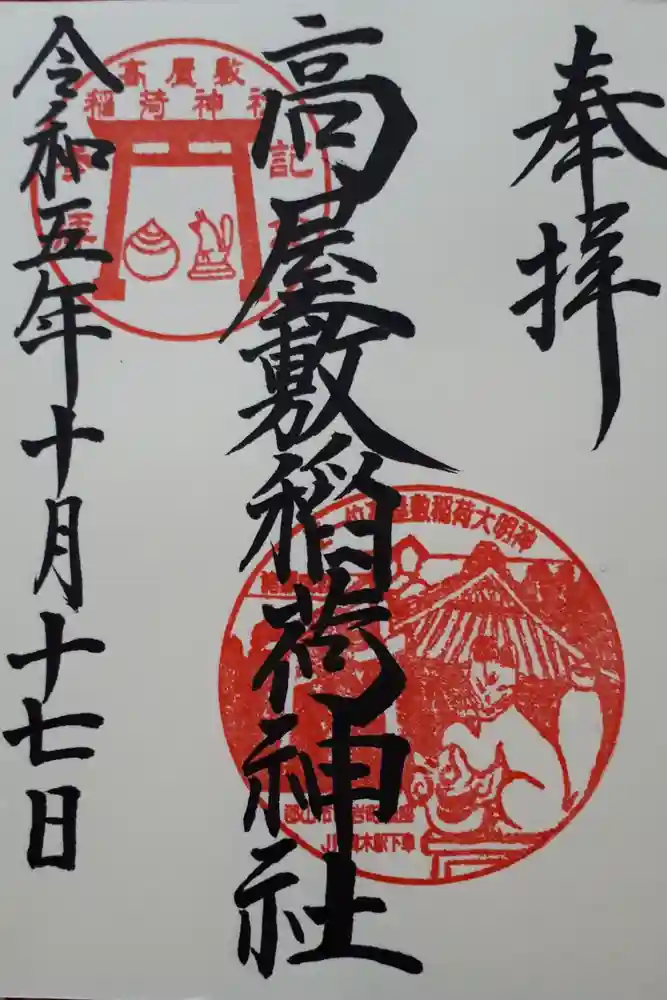 奉拝
高屋敷稲荷神社
高屋敷
稲荷神社
令和五年十月十七日
屋敷稲荷大明神